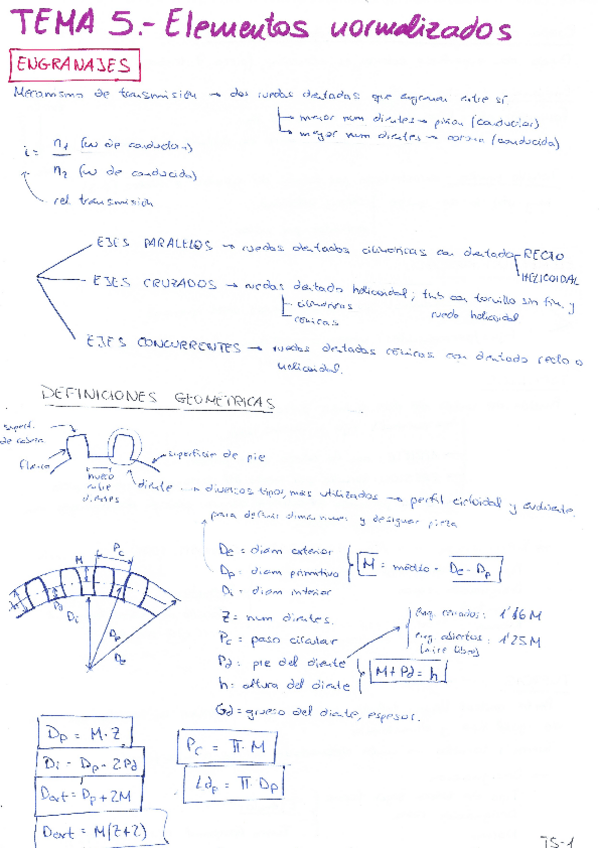 TEMA 5.- Elementos normalizados
ENGRANAJES
Mecanismo de transmisión → dos ruedas dentadas que engranan entre sí
→ menor num dientes → piñon (conductor)
→ mayor num dientes → corona (conducida)
i = n1 (ω de conductora)
n2 (ω de conducida)
rel. transmisión
EJES PARALELOS → ruedas dentadas cilíndricas con dentado RECTO
HELICOIDAL
EJES CRUZADOS → ruedas dentado helicoidal; tmb con tornillo sin fin y
cilíndricas
rueda helicoidal
cónicas
EJES CONCURRENTES → ruedas dentadas cónicas con dentado recto o
helicoidal.
DEFINICIONES GEOMÉTRICAS
superf.
de cabeza
superficie de pie
flanco
hueco
entre
dientes
diente → diversos tipos, mas utilizados → perfil cicloidal y evolvente.
para definir dimensiones y designar pieza
De = diam exterior
Dp = diam primitivo
M = módulo = De - Dp
Di = diam interior
Z = num dientes.
Pc = paso circular
Eng. cerrados: 1'16 M
Eng. abiertos: 1'25 M
(aire libre)
Pd = pie del diente
M + Pd = h
h = altura del diente
Gd = grueso del diente, espesor.
Pc
M
h
Pd
Di
Dp
De
Dp = M·Z
Di = Dp - 2Pd
Dext = Dp + 2M
Dext = M(Z+2)
Pc = π·M
Ldp = π·Dp
T5-1